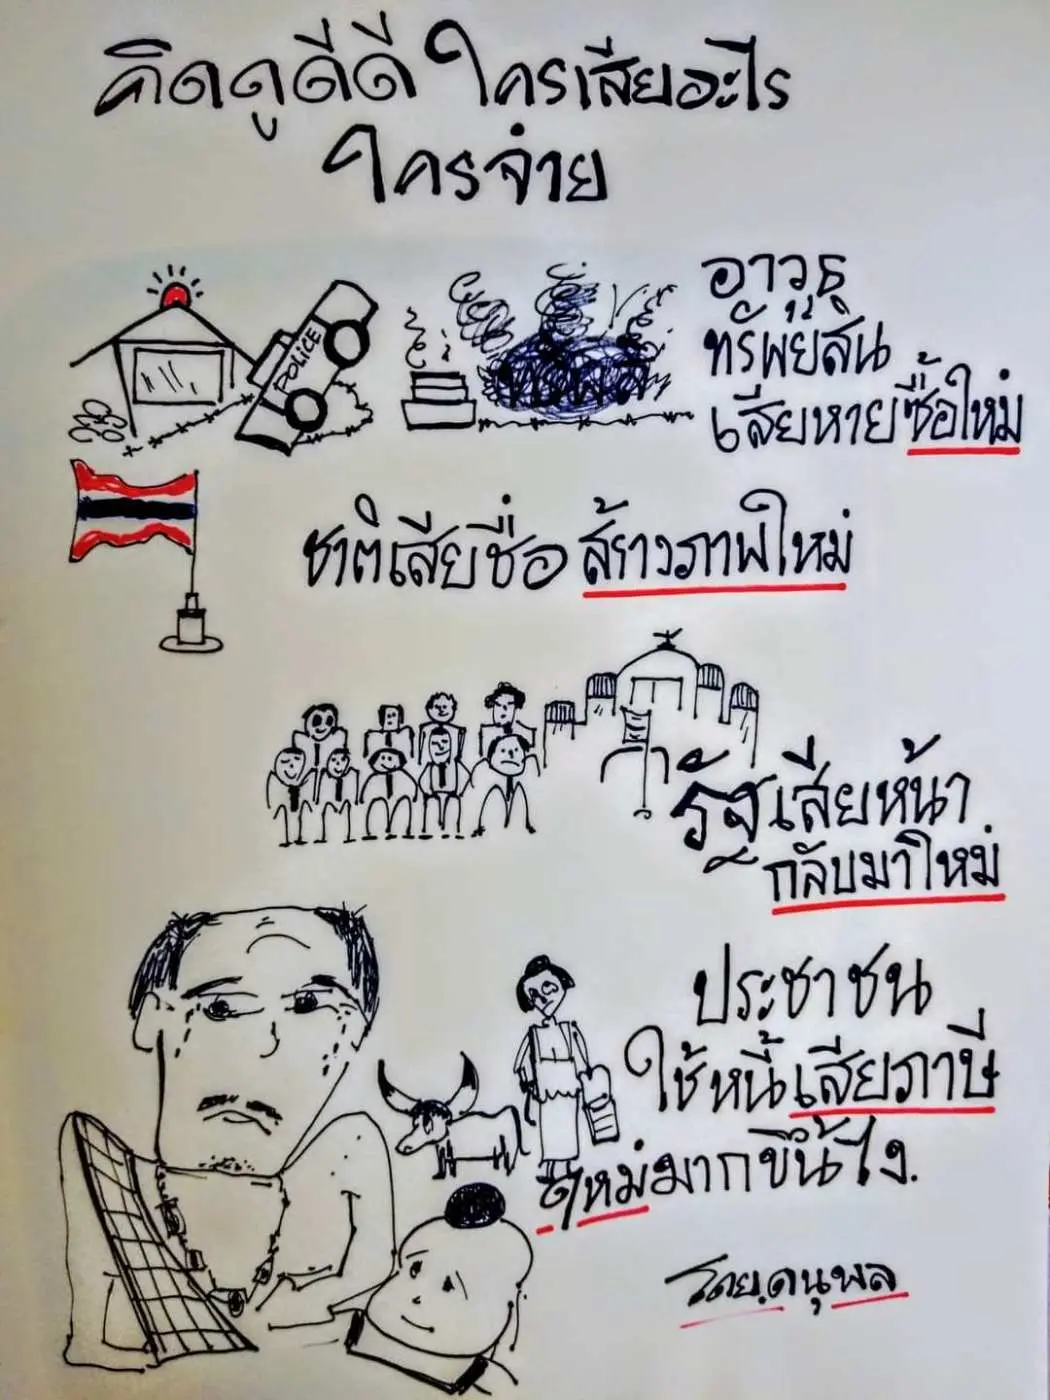 คิดดูดีดี ใครเสียอะไร
ใครจ่าย
POLICE
อาวุธ
ทรัพย์สิน
เสียหายซื้อใหม่
ชาติเสียชื่อ สร้างภาพใหม่
รัฐเสียหน้า
กลับมาใหม่
ประชาชน
ใช้หนี้เสียภาษี
ใหม่มากขึ้นไง.
โดย.ดนุพล